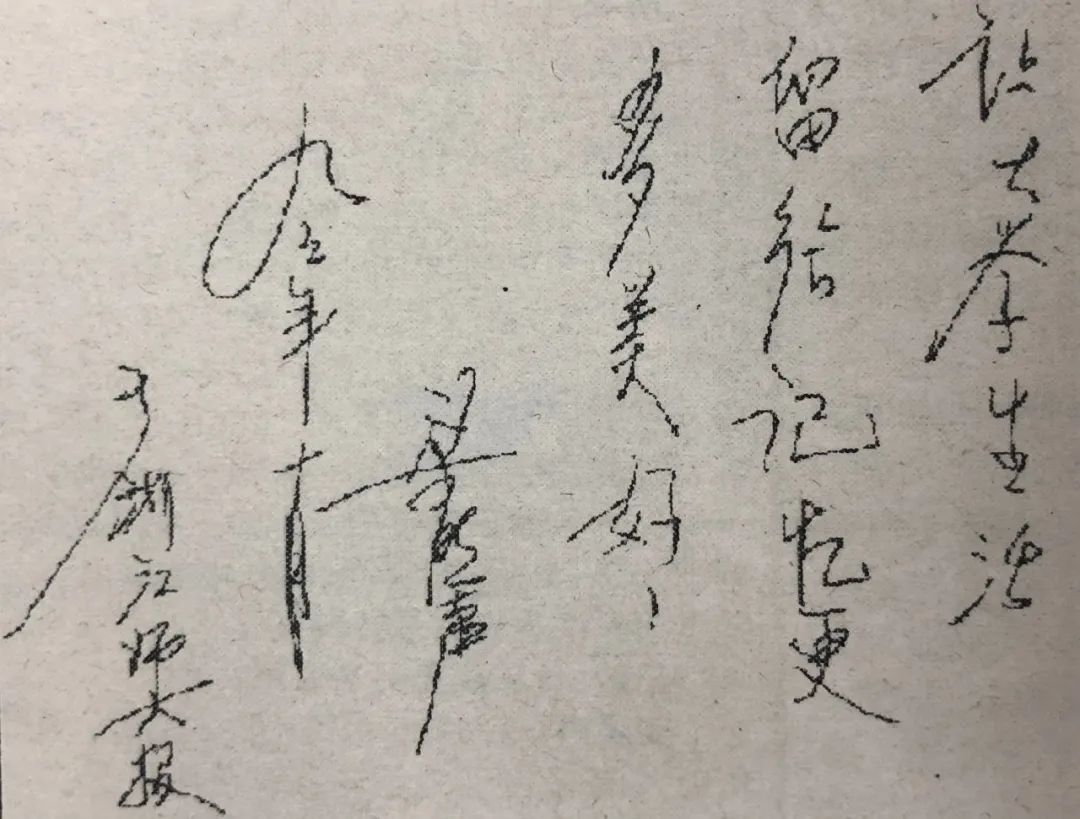 祝大学生活
留给记忆更
多美好!
梁晓声
九年十月
于浙江师大报